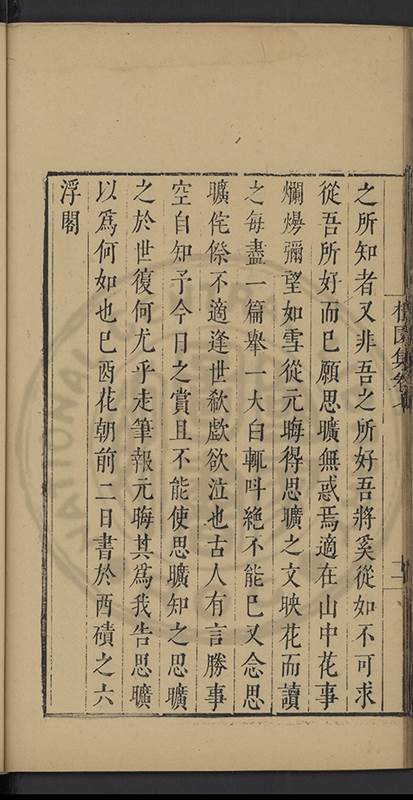 之所知者又非吾之所好吾將奚從如不可求
從吾所好而已願思曠無惑焉適在山中花事
爛熳彌望如雪從元晦得思曠之文映花而讀
之每盡一篇舉一大白輒呌絶不能已又念思
曠侘傺不適逢世欷歔欲泣也古人有言勝事
空自知予今日之賞且不能使思曠知之思曠
之於世復何尤乎走筆報元晦其爲我告思曠
以爲何如也已酉花朝前二日書於西磧之六
浮閣